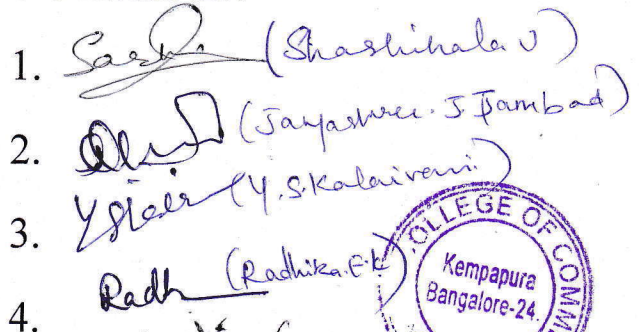 1. (Shashikala V)
2. (Jayashree. J Jambad)
3. (Y.S.Kalaivani.)
4. Radh (Radhika.E.K)
COLLEGE OF COMM
Kempapura
Bangalore-24.